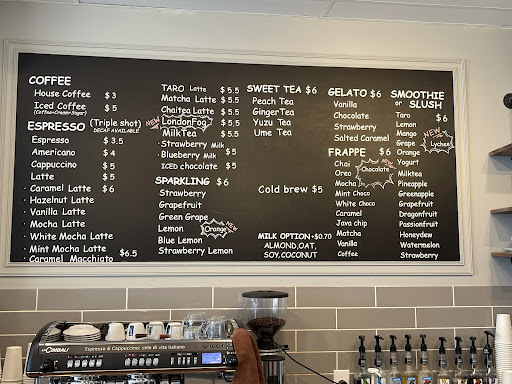 COFFEE
House Coffee $ 3
Iced Coffee $ 5
(Coffee+Creamer Sugar)
ESPRESSO (Triple shot)
DECAF AVAILABLE
Espresso $ 3.5
Americano $ 4
Cappuccino $ 5
Latte $ 5
· Caramel Latte $ 6
· Hazelnut Latte
· Vanilla Latte
· Mocha Latte
· White Mocha Latte
· Mint Mocha Latte $6.5
· Caramel Macchiato
TARO Latte $ 5.5
Matcha Latte $ 5.5
Chaitea Latte $ 5.5
NEW LondonFog $ 5.5
MilkTea $ 5.5
· Strawberry Milk $5
· Blueberry Milk $5
ICED chocolate $5
SPARKLING $6
Strawberry
Grapefruit
Green Grape
Lemon Orange NEW
Blue Lemon
Strawberry Lemon
SWEET TEA $6
Peach Tea
GingerTea
Yuzu Tea
Ume Tea
Cold brew $5
MILK OPTION +$0.70
ALMOND,OAT,
SOY,COCONUT
GELATO $6
Vanilla
Chocolate
Strawberry
Salted Caramel
FRAPPE $6
Chai NEW
Oreo Chocolate
Mocha
Mint Choco
White Choco
Caramel
Java chip
Matcha
Vanilla
Coffee
SMOOTHIE
or SLUSH $6
Taro
Lemon
Mango NEW
Grape Lychee
Orange
Yogurt
Milktea
Pineapple
Greenapple
Grapefruit
Dragonfruit
Passionfruit
Honeydew
Watermelon
Strawberry
Espresso & Cappuccino: stile di vita italiano
CIMBALI